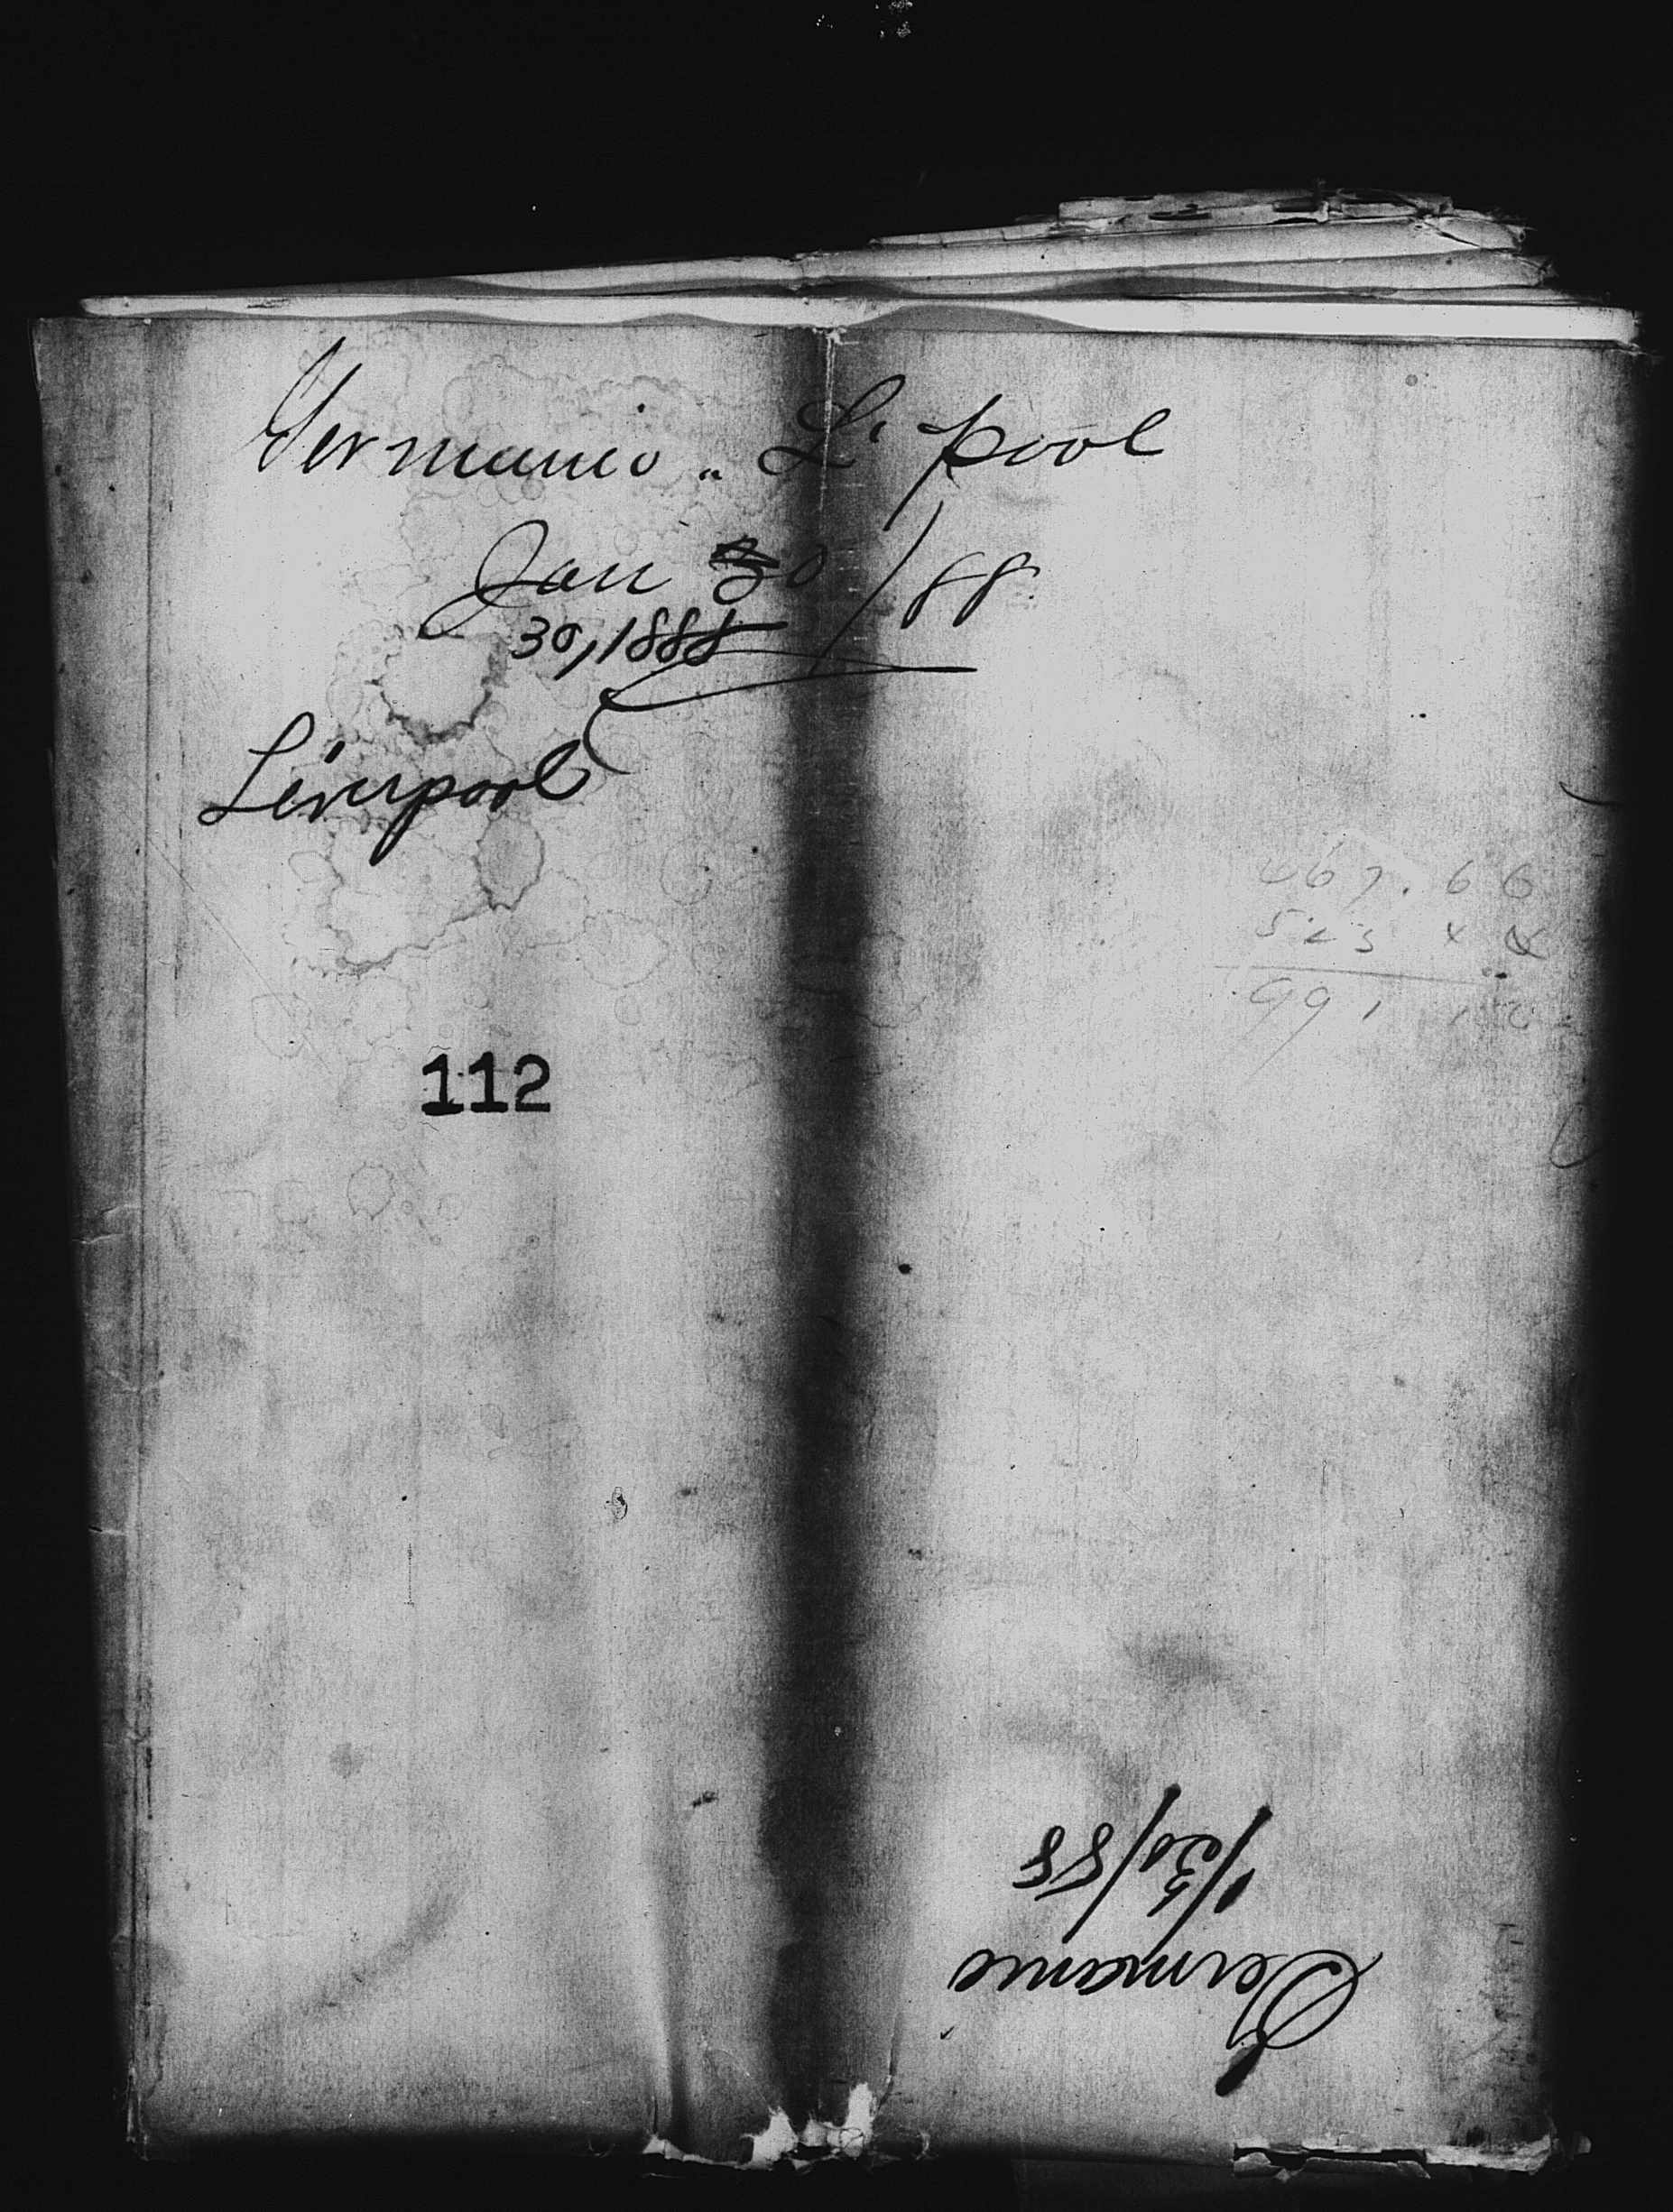 Germanic " L'pool
Jan 30/88
30, 1888
Liverpool
467.66
523 44
991 10
112
1/30/88
Germanic